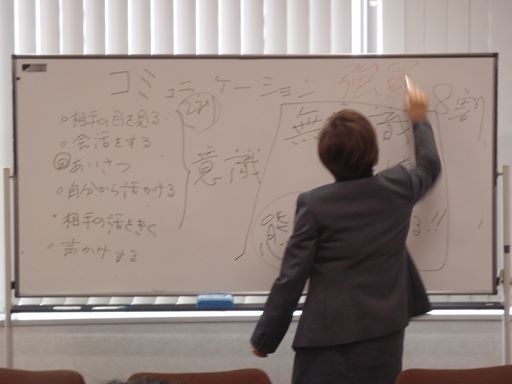 コミュニケーション
8割
無
2割
○相手の目を見る
○会話をする
○あいさつ
○自分から話かける
・相手の話をきく
・声かけする
意識
態
!!